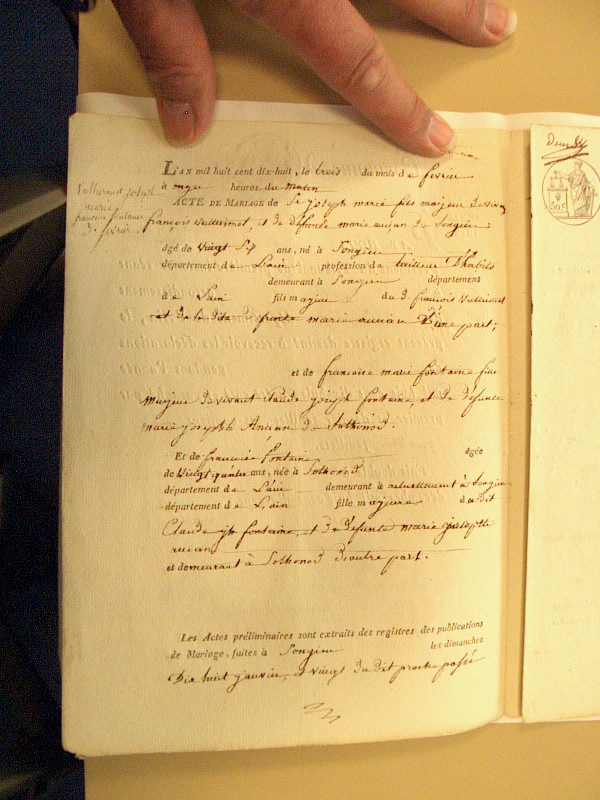 L'AN mil huit cent dix-huit, le trois du mois de février
à onze heure du matin
ACTE DE MARIAGE de Sr joseph marie fils majeur de vivan
françois Vullermet, et de défunte marie aucian de Songieu
âgé de vingt six ans, né à Songieu
département de L'ain profession de tailleur D'habits
demeurant à Songieu département
de L'ain fils majeur du d. françois Vullermet
et de la dite defunte marie aucian D'une part;
et de françoise marie fontaine fille
majeure de vivant claude joseph fontaine, et de défunte
marie josephte de Sothonod.
Et de françoise fontaine âgée
de vingt quatre ans, née à Sothonod
département de L'ain demeurant à actuellement à Songieu
département de L'ain fille majeure du dit
Claude jph fontaine, et de défunte marie josephte
aucian
et demeurant à Sothonod D'autre part.
Les Actes préliminaires sont extraits des registres des publications
de Mariage, faites à Songieu les dimanches
Dix huit janvier, et vingt du dit proche passé
joseph
marie
françoise fontaine
3. février